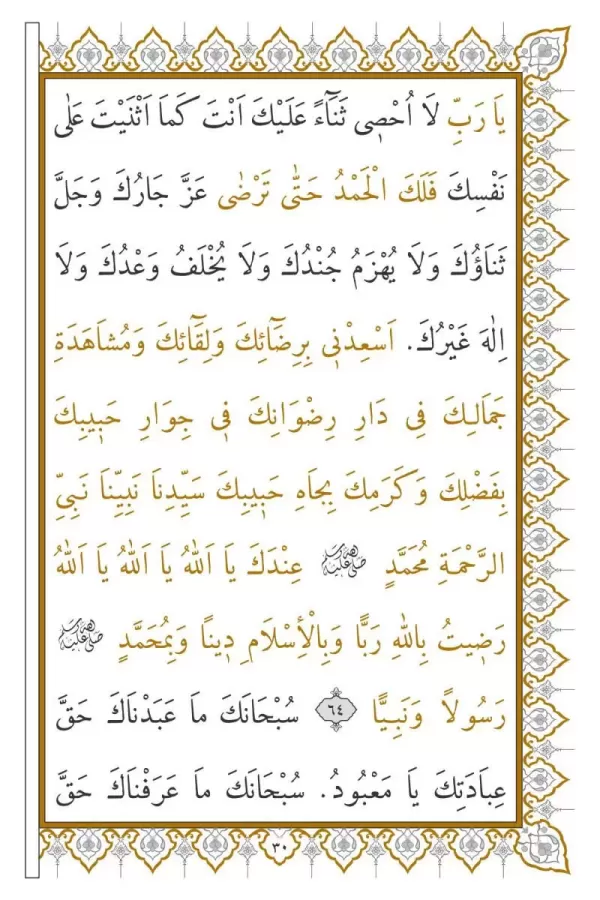 يَا رَبِّ لَا اُحْصِي ثَنَآءً عَلَيْكَ اَنْتَ كَمَا اَثْنَيْتَ عَلٰى
نَفْسِكَ فَلَكَ الْحَمْدُ حَتّٰى تَرْضٰى عَزَّ جَارُكَ وَجَلَّ
ثَنَاؤُكَ وَلَا يُهْزَمُ جُنْدُكَ وَلَا يُخْلَفُ وَعْدُكَ وَلَا
اِلٰهَ غَيْرُكَ. اَسْعِدْنِي بِرِضَآئِكَ وَلِقَآئِكَ وَمُشَاهَدَةِ
جَمَالِكَ فِي دَارِ رِضْوَانِكَ فِي جِوَارِ حَبِيبِكَ
بِفَضْلِكَ وَكَرَمِكَ بِجَاهِ حَبِيبِكَ سَيِّدِنَا نَبِيِّنَا نَبِيِّ
الرَّحْمَةِ مُحَمَّدٍ ﷺ عِنْدَكَ يَا اَللّٰهُ يَا اَللّٰهُ يَا اَللّٰهُ
رَضِيتُ بِاللّٰهِ رَبًّا وَبِالْأِسْلَامِ دِينًا وَبِمُحَمَّدٍ ﷺ
رَسُولًا وَنَبِيًّا ٦٤ سُبْحَانَكَ مَا عَبَدْنَاكَ حَقَّ
عِبَادَتِكَ يَا مَعْبُودُ. سُبْحَانَكَ مَا عَرَفْنَاكَ حَقَّ
٣٠